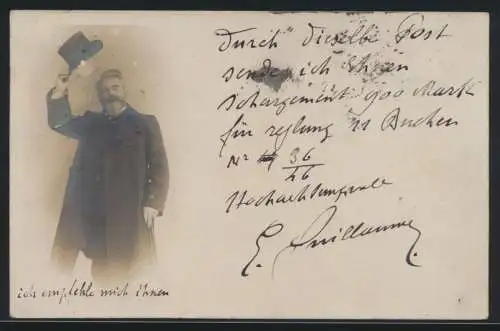 Durch dieselbe Post
sende ich Ihnen
chargement 900 Mark
für 11
Nr 36
46
Hochachtungsvoll
E. Guillaume
ich empfehle mich Ihnen